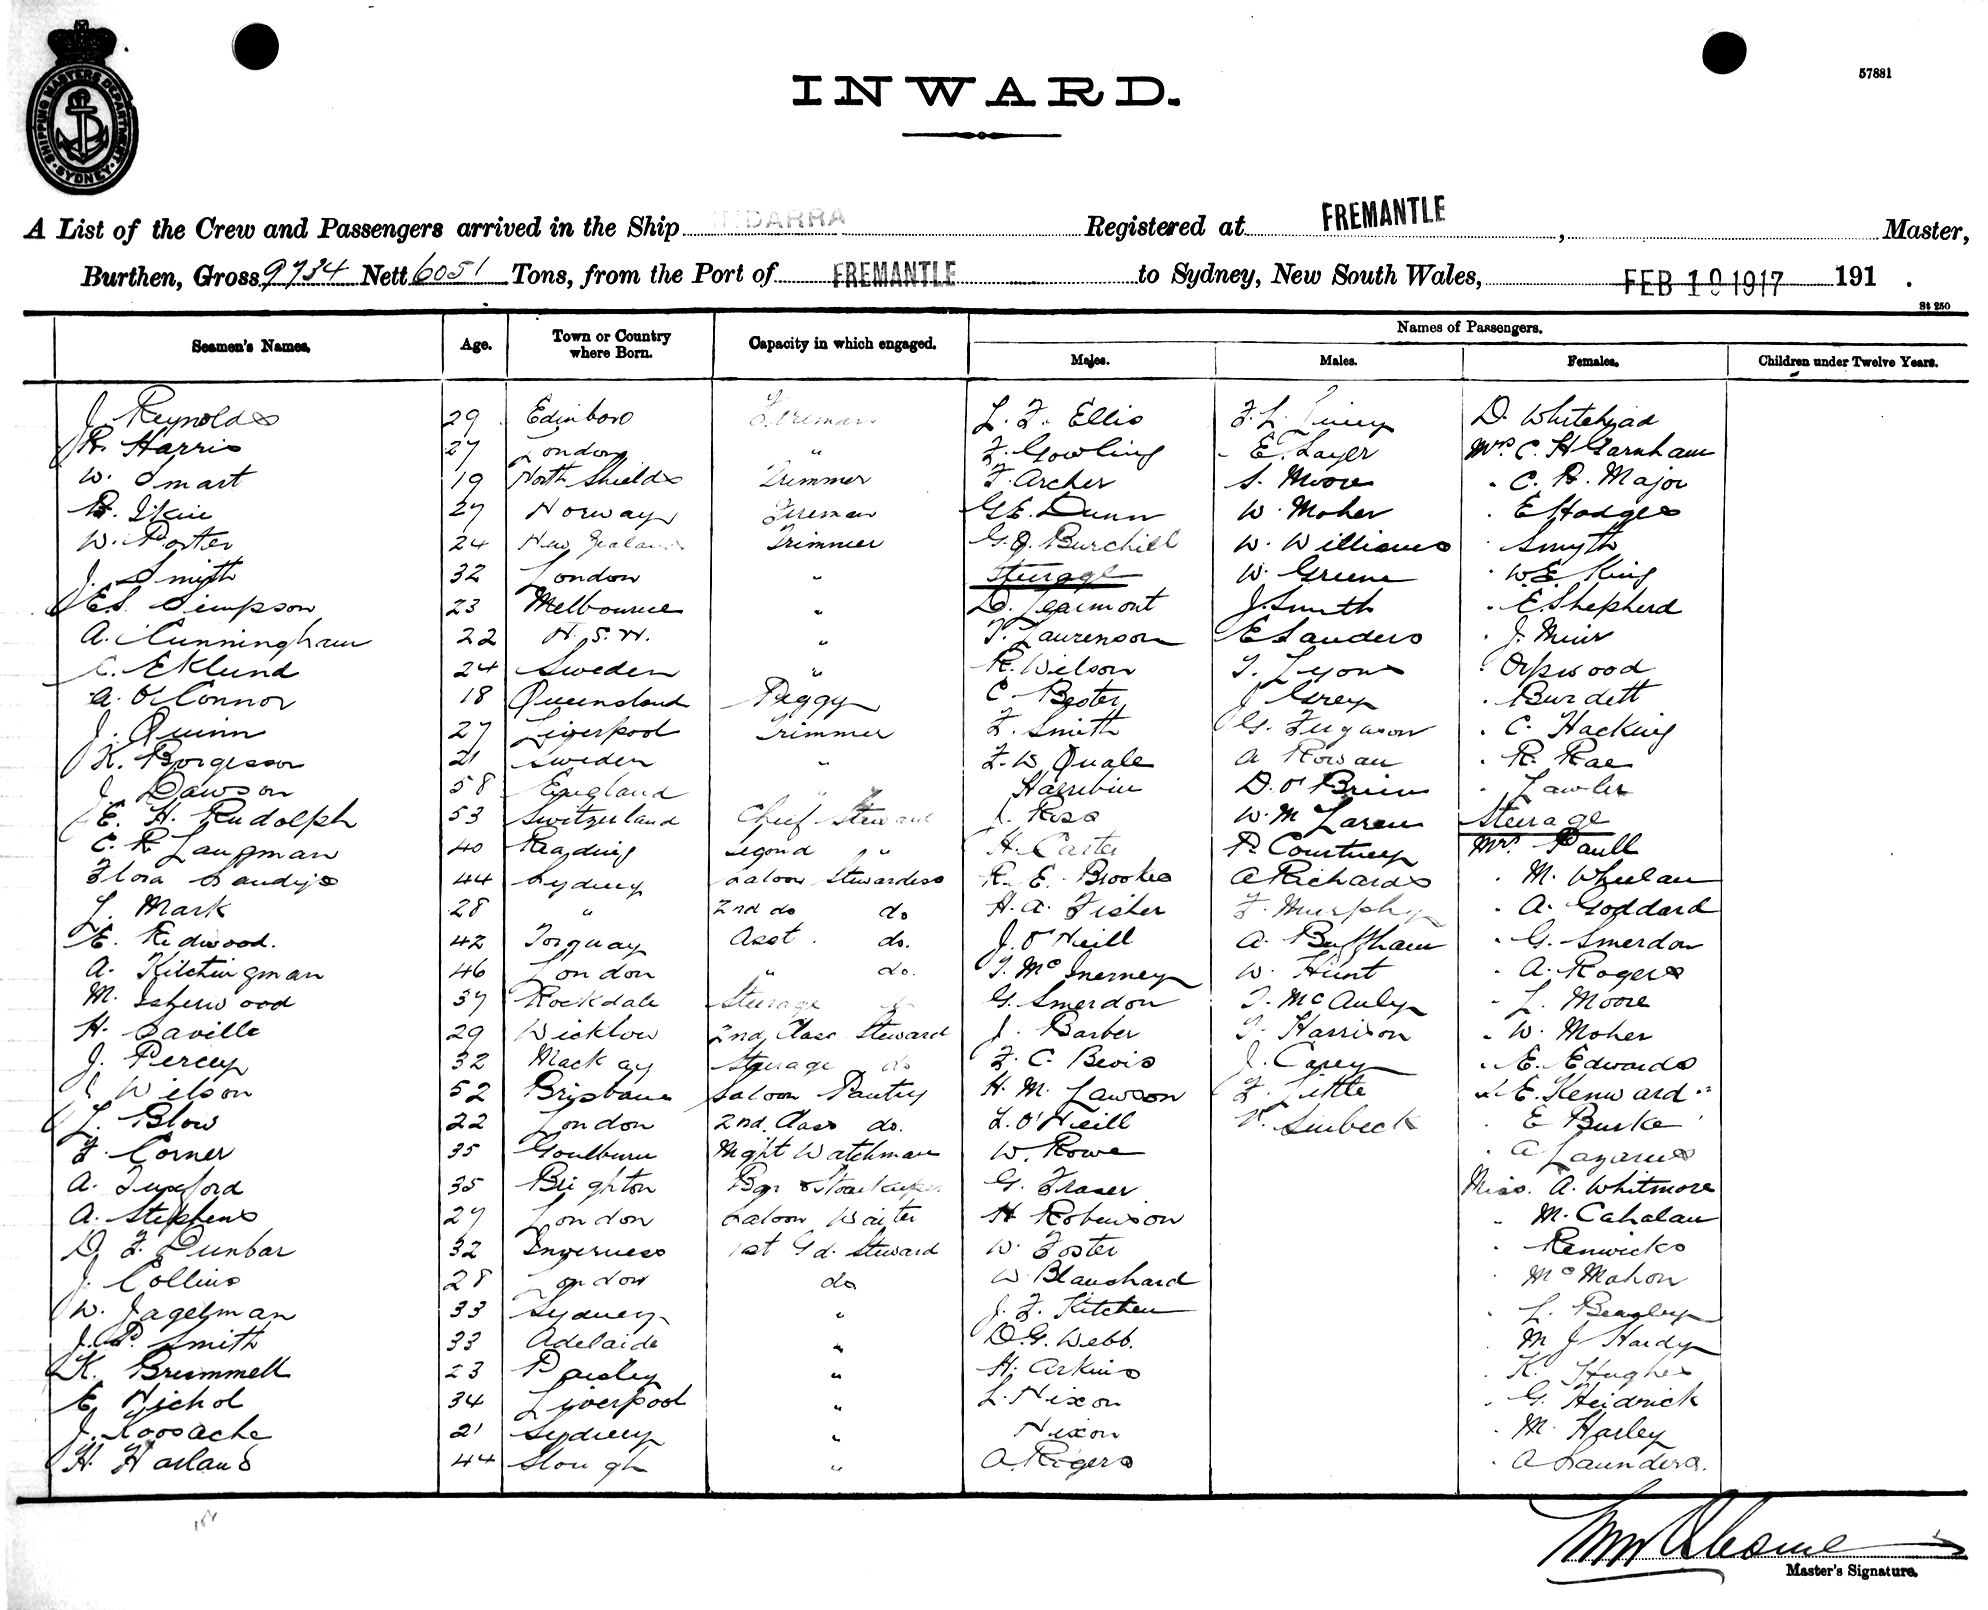 SHIPPING MASTERS DEPARTMENT
SYDNEY
57881
INWARD.
A List of the Crew and Passengers arrived in the Ship INDARRA Registered at FREMANTLE, Master,
Burthen, Gross 9734 Nett 6051 Tons, from the Port of FREMANTLE to Sydney, New South Wales, FEB 10 1917 191 .
St 250
Names of Passengers.
Seamen's Names. Age. Town or Country where Born. Capacity in which engaged. Males. Males. Females. Children under Twelve Years.
J. Reynolds 29 Edinboro Fireman L. F. Ellis F. L. D. Whitehead
R. Harris 27 London " F. Gowling E. Layer Mrs. C. H Garnham
W. Smart 19 North Shields Trimmer F. Archer S. Moore . C. B. Major
27 Norway Fireman G E. Dunn W. Moher . E Hodges
W. Porter 24 New Zealand Trimmer G. J. Burchill W. Williams . Smyth
J. Smith 32 London " Steerage W. Greene . W. E. King
E. S. Simpson 23 Melbourne " D. Legimont J. Smith . E. Shepherd
A. Cunningham 22 N. S. W. " T. Laurenson E Sanders . J. Muir
C. Eklund 24 Sweden " R. Wilson T. Lyons . Orpwood
A. O'Connor 18 Queensland Peggy C Bester J Grey . Burdett
J. Quinn 27 Liverpool Trimmer F. Smith G. Ferguson . C. Hacking
K. Borgesson 21 Sweden " F. W Quale A Rowan . R. Rae
J Dawson 58 England Harribin D. O'Brien . Lawler
E. H. Rudolph 53 Switzerland Chief Steward J. Ross W. McLaren Steerage
C. R Langman 40 Reading Second " H. Carter P. Courtney Mrs. Paull
Flora Landys 44 Sydney Saloon Stewardess R. E. Brookes A Richards . M. Whelan
L. Mark 28 " 2nd do do H. A. Fisher F. Murphy . A. Goddard
E. Redwood. 42 Torquay Asst. do. J. O'Neill A. Buffham . G. Smerdon
A. Kitchingman 46 London " do. T. McInerney W. Hunt . A. Rogers
M. Isherwood 37 Rockdale Steerage do G. Smerdon T. McAuly . L. Moore
H. Saville 29 Wicklow 2nd Class Steward J. Barber T. Harrison . W. Moher
J. Percy 32 Mackay Steerage do F. C. Bevis J. Carey . E. Edwards
J Wilson 52 Brisbane Saloon Pantry H. M. Lawson F. Little . E. Kenward
L. Blow 22 London 2nd Class do. L. O'Neill Sinbeck . E Burke
F. Corner 35 Goulburn Night Watchman W. Rowe . A Lazarus
A. Tuxford 35 Brighton Bar & Storekeeper G. Fraser Miss. A. Whitmore
A. Stephens 27 London Saloon Waiter H Robinson . M. Cahalan
D. F. Dunbar 32 Inverness 1st Gd. Steward W. Foster . Renwicks
J. Collins 28 London do W Blanshard . McMahon
W. Jagelman 33 Sydney " J. F. Kitchen . L. Beagley
J. P. Smith 33 Adelaide " D. G. Webb. . M J Hardy
K. Brummell 23 Paisley " H. Arkins . K. Hughes
E. Nichol 34 Liverpool " L. Nixon . G. Heidrick
J. 21 Sydney " Nixon . M. Harley
H. Harland 44 Slough " A. Rogers . A Saunders.
Master's Signature.